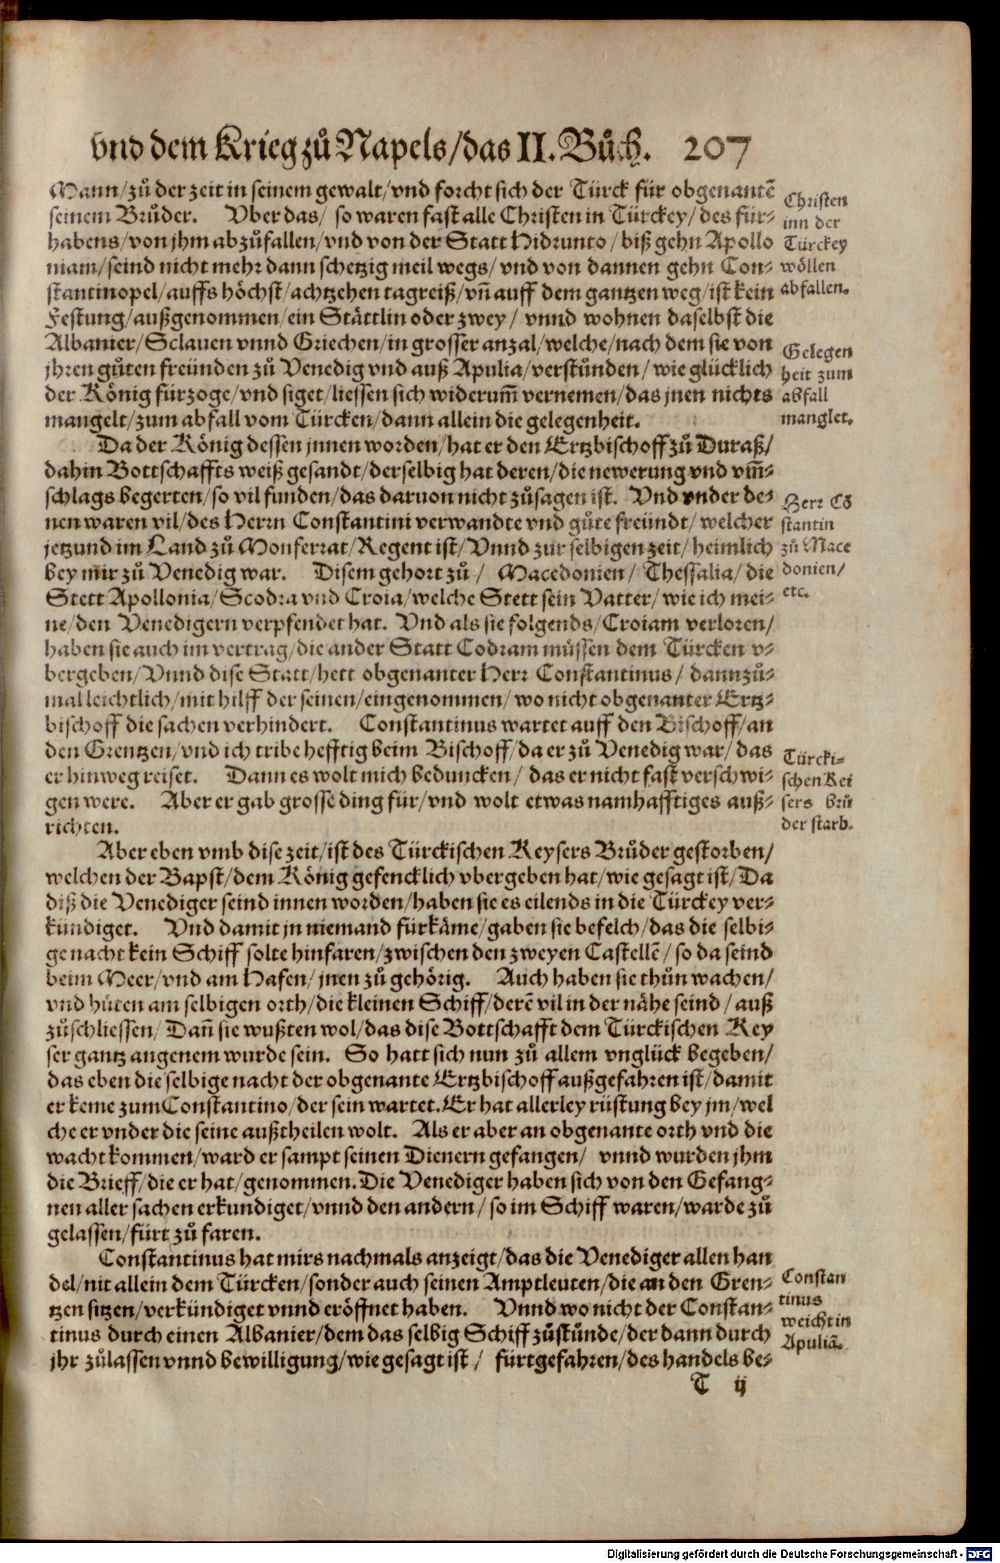 vnd dem Krieg zů Napels/das II. Bůch. 207
Mann/zů der zeit in seinem gewalt/vnd forcht sich der Türck für obgenantē
seinem Brůder. Vber das/ so waren fast alle Christen in Türckey/des für-
habens/von jhm abzůfallen/vnd von der Statt Hidrunto/biß gehn Apollo
niam/seind nicht mehr dann schetzig meil wegs/vnd von dannen gehn Con-
stantinopel/auffs höchst/achtzehen tagreiß/vñ auff dem gantzen weg/ist kein
Festung/außgenommen/ein Stättlin oder zwey/ vnnd wohnen daselbst die
Albanier/Sclauen vnnd Griechen/in grosser anzal/welche/nach dem sie von
jhren gůten freünden zů Venedig vnd auß Apulia/verstůnden/wie glücklich
der König fürzoge/vnd siget/liessen sich widerum̃ vernemen/das jnen nichts
mangelt/zum abfall vom Türcken/dann allein die gelegenheit.
Christen
inn der
Türckey
wöllen
abfallen.
Gelegen
heit zum
abfall
manglet.
Da der König dessen jnnen worden/hat er den Ertzbischoff zů Duraß/
dahin Bottschaffts weiß gesandt/derselbig hat deren/die newerung vnd vm̃-
schlags begerten/so vil funden/das daruon nicht zůsagen ist. Vnd vnder de-
nen waren vil/des Herrn Constantini verwandte vnd gůte freündt/welcher
jetzund im Land zů Monferrat/Regent ist/Vnnd zur selbigen zeit/heimlich
bey mir zů Venedig war. Disem gehort zů/ Macedonien/ Thessalia/die
Stett Apollonia/Scodra vnd Croia/welche Stett sein Vatter/wie ich mei-
ne/den Venedigern verpfendet hat. Vnd als sie folgends/Croiam verloren/
haben sie auch im vertrag/die ander Statt Codram müssen dem Türcken v-
bergeben/Vnnd dise Statt/hett obgenanter Herr Constantinus/dannzů-
mal leichtlich/mit hilff der seinen/eingenommen/wo nicht obgenanter Ertz-
bischoff die sachen verhindert. Constantinus wartet auff den Bischoff/an
den Grentzen/vnd ich tribe hefftig beim Bischoff/da er zů Venedig war/das
er hinweg reiset. Dann es wolt mich beduncken/das er nicht fast verschwi-
gen were. Aber er gab grosse ding für/vnd wolt etwas namhafftiges auß-
richten.
Herr Cō
stantin
zů Mace
donien/
etc.
Türcki-
schen Kei
sers brů
der starb.
Aber eben vmb dise zeit/ist des Türckischen Keysers Brůder gestorben/
welchen der Bapst/dem König gefencklich vbergeben hat/wie gesagt ist/Da
diß die Venediger seind innen worden/haben sie es eilends in die Türckey ver-
kündiget. Vnd damit jn niemand fürkäme/gaben sie befelch/das die selbi-
ge nacht kein Schiff solte hinfaren/zwischen den zweyen Castellē/so da seind
beim Meer/vnd am Hafen/jnen zů gehörig. Auch haben sie thůn wachen/
vnd hůten am selbigen orth/die kleinen Schiff/derē vil in der nähe seind/auß
zůschliessen/ Dañ sie wußten wol/das dise Bottschafft dem Türckischen Key
ser gantz angenem wurde sein. So hatt sich nun zů allem vnglück begeben/
das eben die selbige nacht der obgenante Ertzbischoff außgefahren ist/damit
er keme zum Constantino/der sein wartet. Er hat allerley rüstung bey jm/wel
che er vnder die seine außtheilen wolt. Als er aber an obgenante orth vnd die
wacht kommen/ward er sampt seinen Dienern gefangen/ vnnd wurden jhm
die Brieff/die er hat/genommen. Die Venediger haben sich von den Gefang-
nen aller sachen erkundiget/vnnd den andern/so im Schiff waren/warde zů
gelassen/fürt zů faren.
Constantinus hat mirs nachmals anzeigt/das die Venediger allen han
del/nit allein dem Türcken/sonder auch seinen Amptleuten/die an den Gren-
tzen sitzen/verkündiget vnnd eröffnet haben. Vnnd wo nicht der Constan-
tinus durch einen Albanier/dem das selbig Schiff zůstůnde/der dann durch
jhr zůlassen vnnd bewilligung/wie gesagt ist/ fürtgefahren/des handels be-
Constan
tinus
weicht in
Apuliā.
T ij
Digitalisierung gefördert durch die Deutsche Forschungsgemeinschaft - DFG